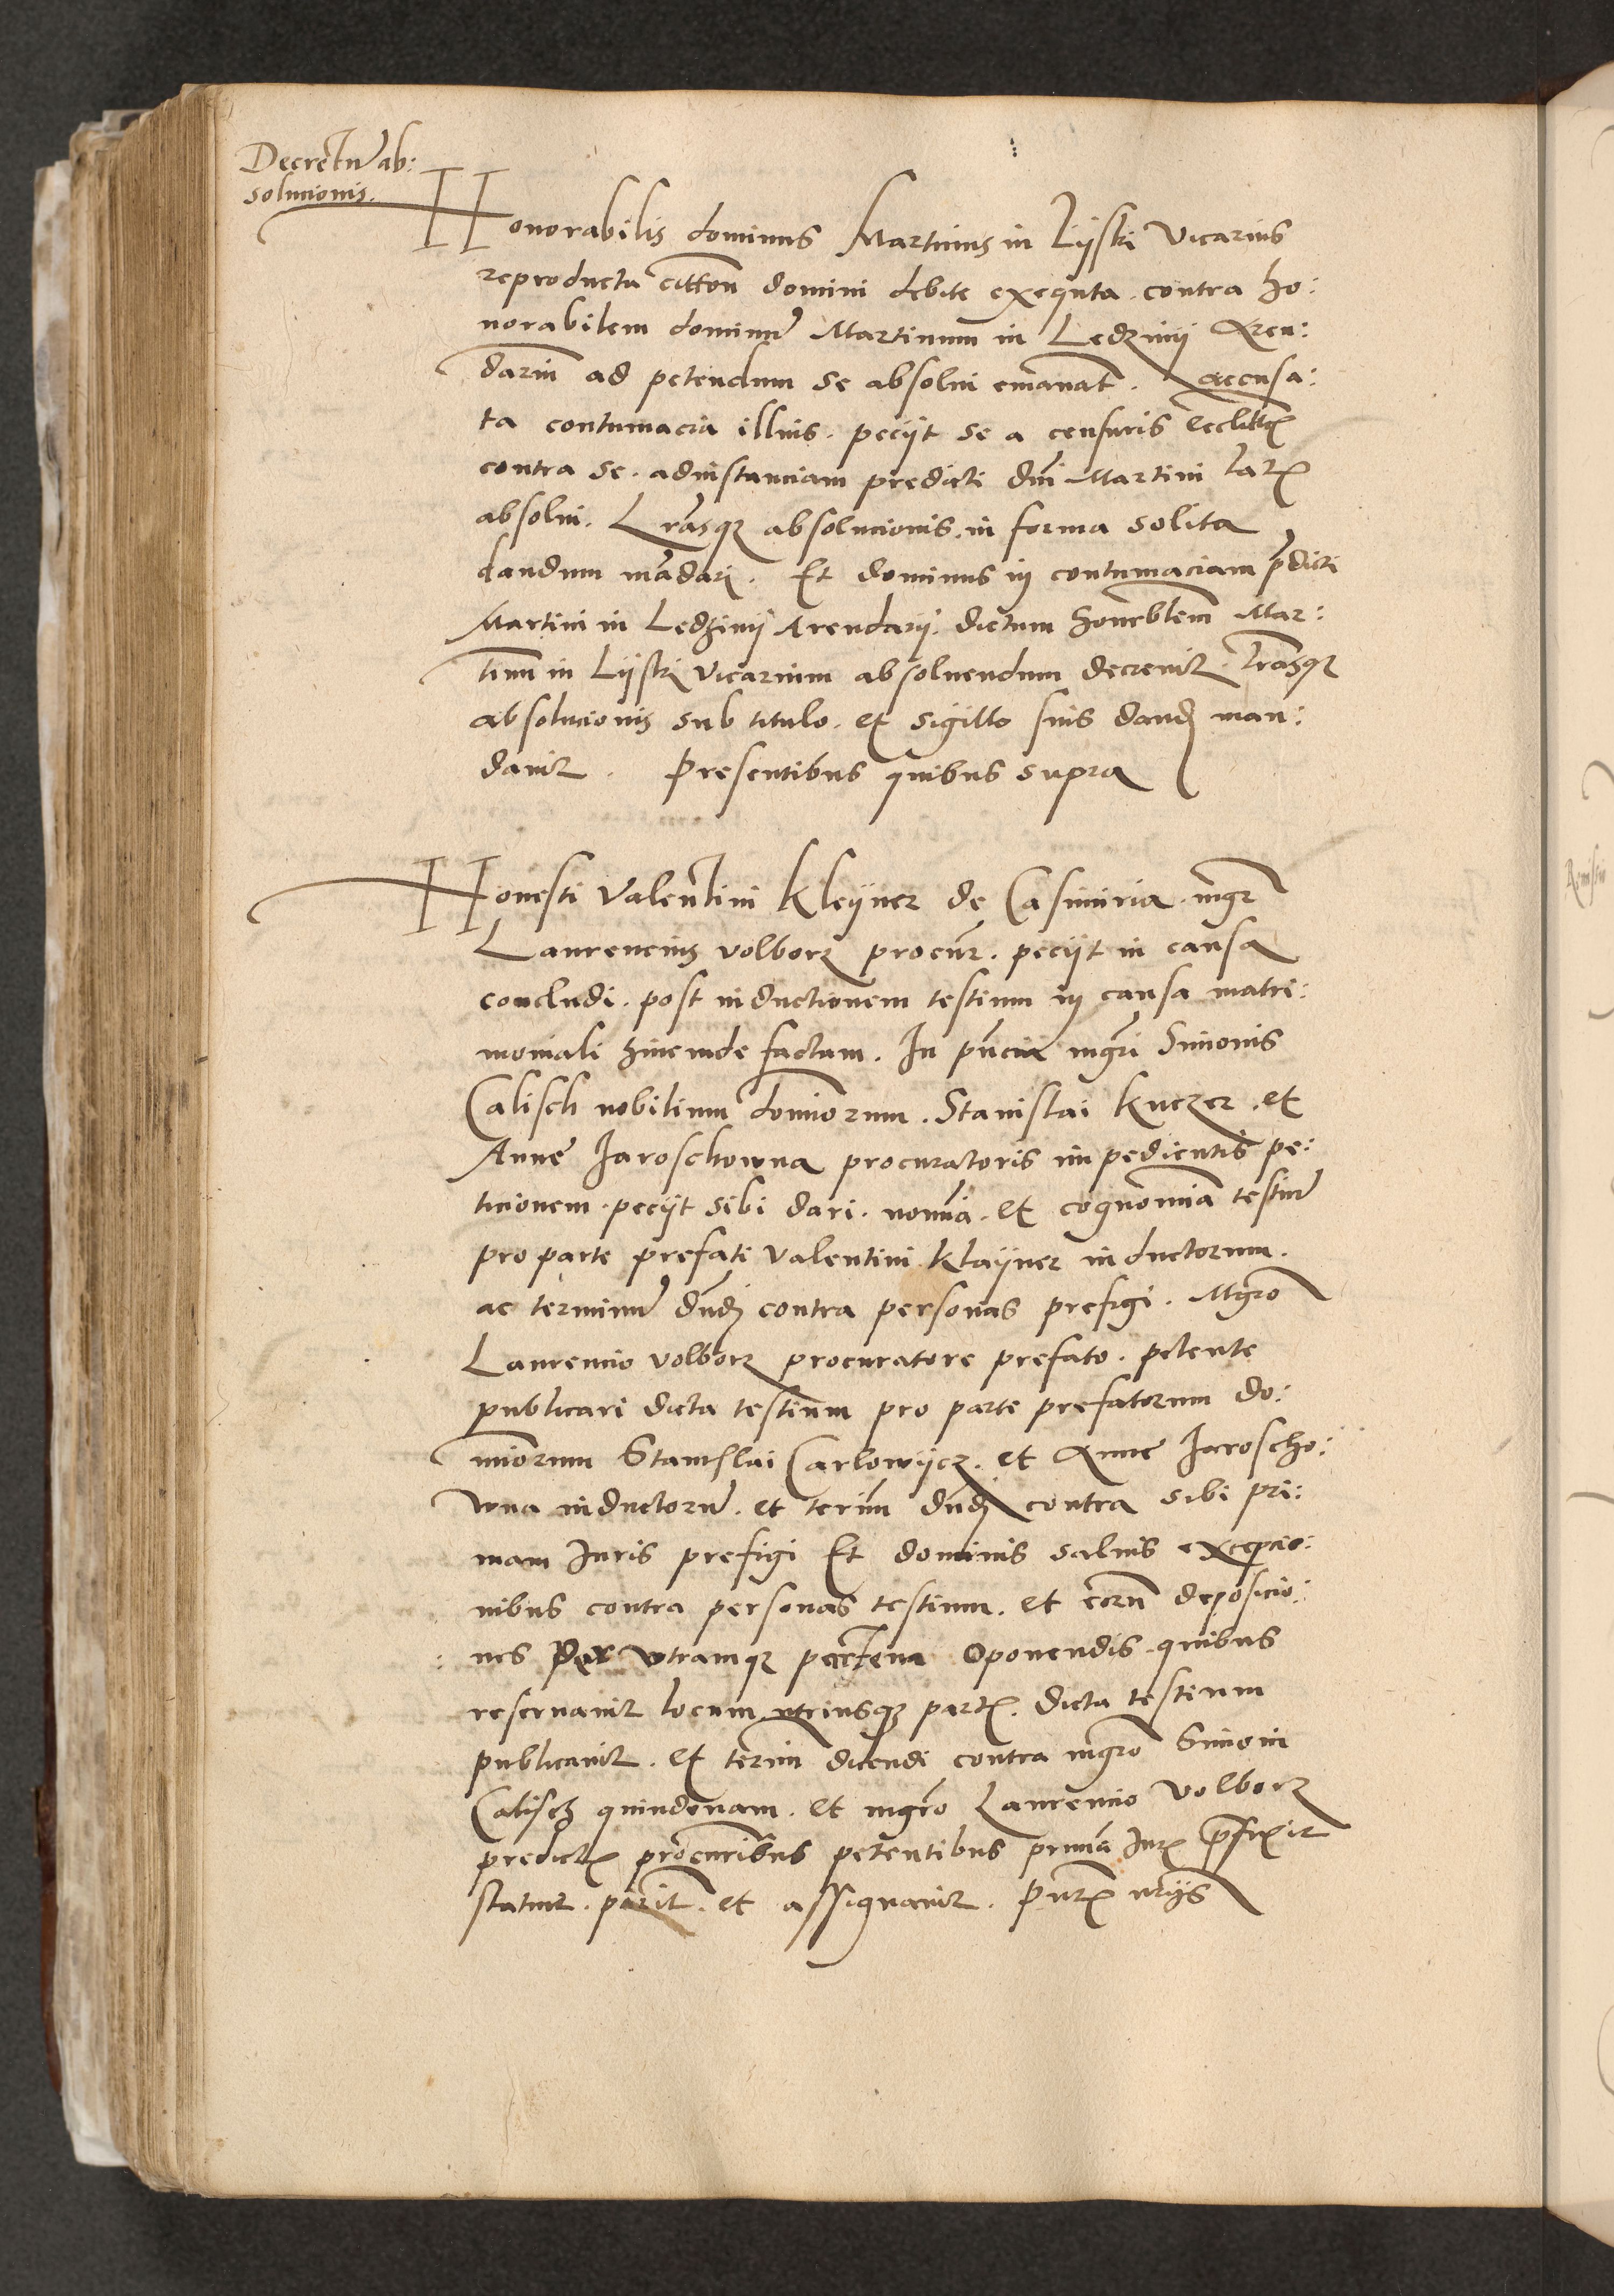 Decretu ab:
solucionis.
Honorabilis dominus Martinus in Lijski Vicarius
reproducta citton domini debite exequta. contra ho:
norabilem dominu Martinum in Ledzinij Aren:
dariu ad petendum se absolui emanat. Accusa:
ta contumacia illius. peciit se a censuris
contra se. adinstanciam predicti dni Martini lat
absolui. Lrasq absolucionis. in forma solita
dandum madari. Et dominus in contumaciam pdicti
Martini in Ledzinij Arendarij. dictum honorblem Mar:
tinu in Lijski Vicarium absoluendum decreuit. lrasq
absolucionis sub titulo. et sigillo suis dand man:
dauit. Presentibus quibus supra
Honesti Valentini Kleijner de Casimiria. mgr
Laurencius Volborz procur. peciit in causa
concludi. post inductionem testium in causa matri:
moniali hincinde factam. In pncia mgri Simonis
Calisch nobilium dominorum. Stanislai Kuczer. et
Anne Jaroschowna procuratoris impedientis pe:
ticionem. peciit sibi dari. nomina. et cognomina testiu
pro parte prefati Valentini Klaijner inductorum.
ac terminu dnd contra personas prefigi. Mgro
Laurencio Volborz procuratore prefato. petente
publicari dicta testium pro parte prefatorum do:
minorum Stanislai Carlowijcz. et Anne Jaroscho:
wna inductoru. et terim dnd contra sibi pri:
mam Juris prefigi Et dominus saluis excepcio:
nibus contra personas testium. et eoru deposicio:
nes per vtramq partem Oponendis. quibus
reseruauit locum vtriusq part. dicta testium
publicauit. et termi dicendi contra mgro Simoni
Calisch quindenam. et mgro Laurencio Volborz
predict procuribus petentibus prima Jur pfixit
statuit. et assignauit. Pnt